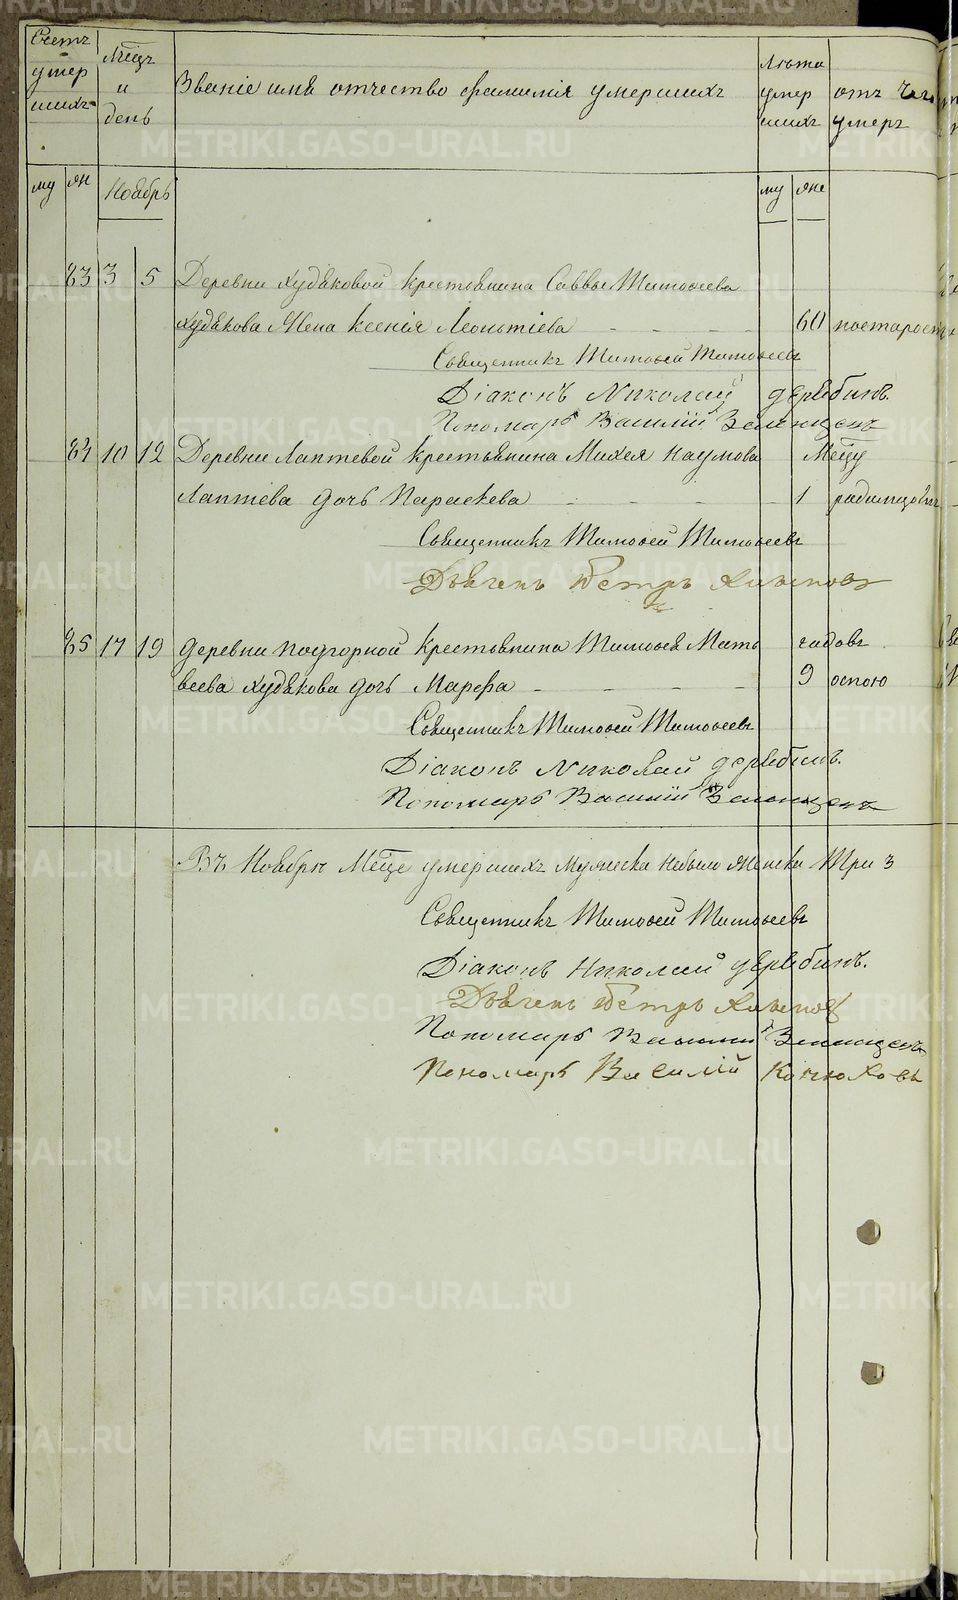 Счетъ умер шихъ
Мѣцъ и день
Званіе имя отчество фамилія умершихъ
Лѣта умер шихъ
отъ чего умеръ
му
жн
Ноябрь
му
жн
83 3 5 Деревни Худяковой крестьянина Саввы Тимоѳеева
Худякова жена Ксенія Леонтіева 60 постарости
Священникъ Тимоѳей Тимоѳеевъ
Діаконъ Николай Дерябинъ.
Пономарь Василій
84 10 12 Деревни Лаптевой крестьянина Михея Наумова Мѣцу
Лаптева дочь Параскева 1 радимцовъ
Священникъ Тимоѳей Тимоѳеевъ
Дьячекъ Петръ
85 17 19 Деревни Подгорной крестьянина Тимоѳея Мат годовъ
веева Худякова дочь Марѳа 9 оспою
Священникъ Тимоѳей Тимоѳеевъ
Діаконъ Николай Дерябинъ.
Пономарь Василій
Въ Ноябрѣ Мѣцѣ умершихъ мужска небыло женска три 3
Священникъ Тимоѳей Тимоѳеевъ
Діаконъ Николай Дерябинъ.
Дьячекъ Петръ
Пономарь Василій
Пономарь Василій Конюховъ
METRIKI.GASO-URAL.RU